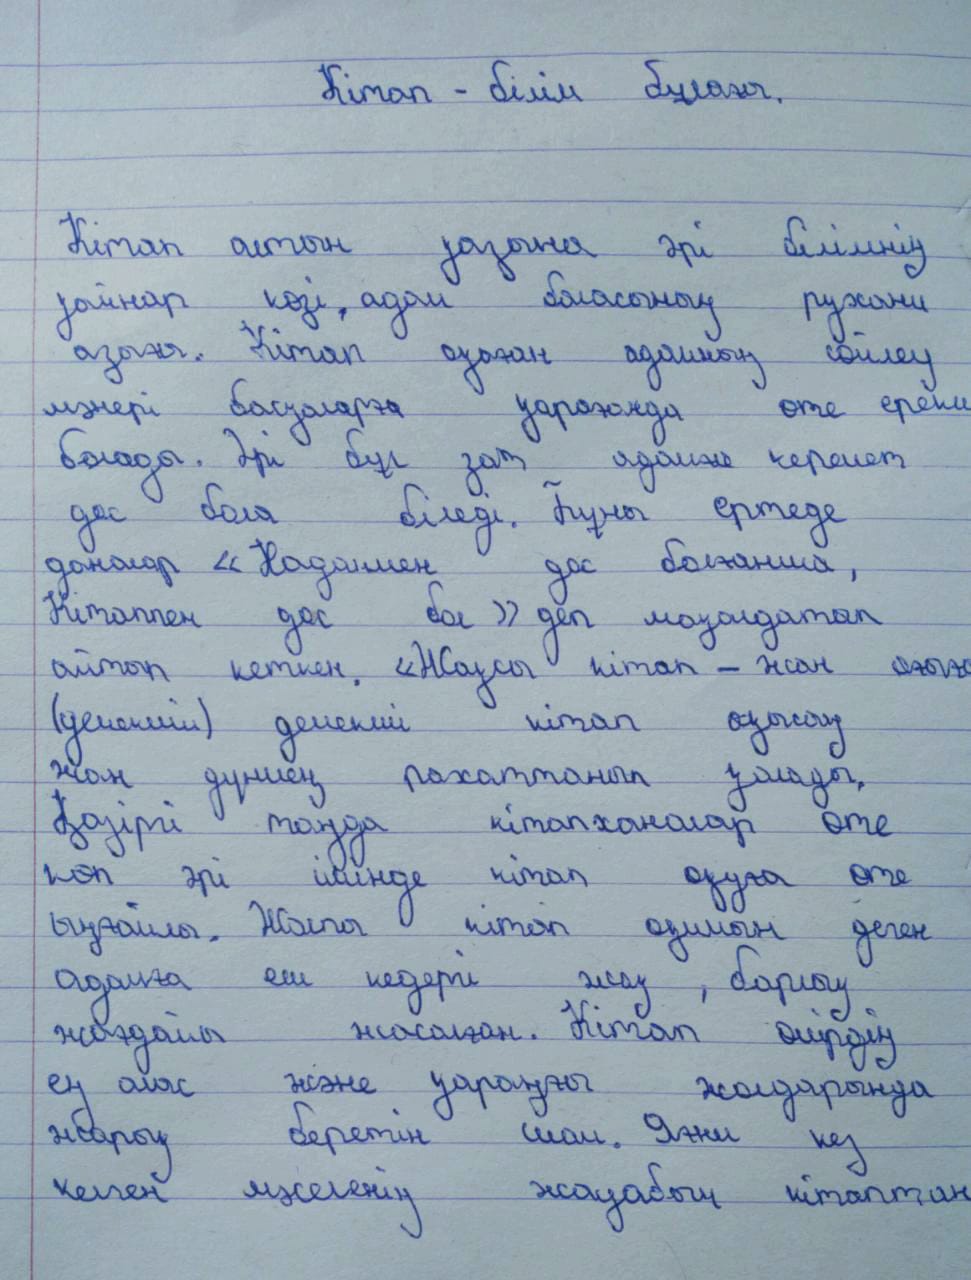 Кітап - білім бұлағы.
Кітап алтын қазына әрі білімнің
қайнар көзі, адам баласының рухани
азығы. Кітап оқыған адамның сөйлеу
мәнері басқаларға қарағанда өте ерекш
болады. Әрі бұл зат адамға керемет
дос бола біледі. Бұны ертеде
даналар «Наданмен дос болғанша,
Кітаппен дос бол» деп мақалдатып
айтып кеткен. «Жақсы кітап – жан азығы
(демекші) демекші кітап оқысаң
жан дүниең рахаттанып қалады.
Қазіргі таңда кітапханалар өте
көп әрі ішінде кітап оқуға өте
ыңғайлы. Жалпы кітап оқимын деген
адамға еш кедергі жоқ, барлық
жағдайы жасалған. Кітап өмірдің
ең алас және қараңғы жолдарында
жарық беретін шам. Яғни кез
келген мәселенің жауабын кітаптан